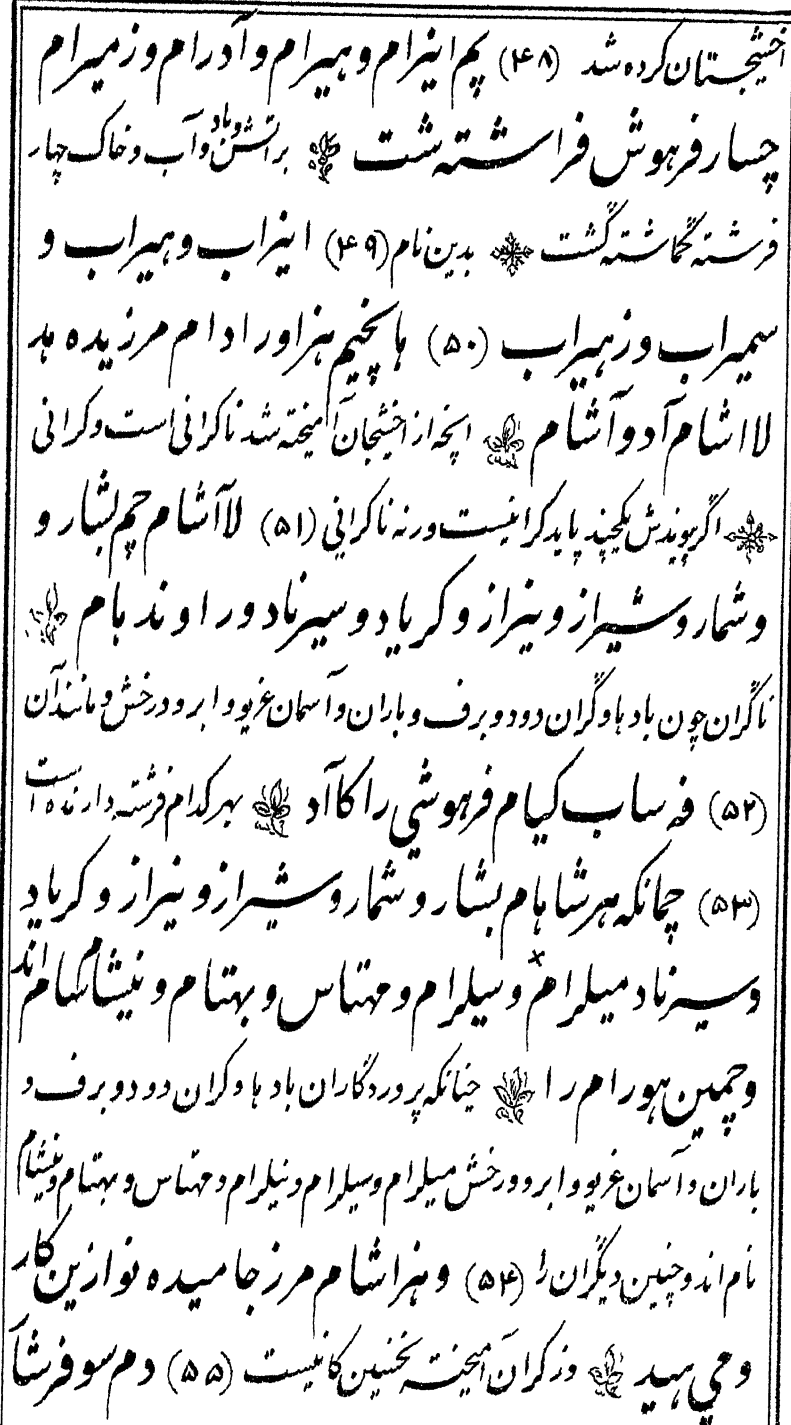 اخشیجستان کرده شد (۴۸) پم انیرام و هیرام و آدرام و زمیرام
چسار فرهوش فراشته شت بر آتش و باد و آب و خاک چهار
فرشته گماشته گشت بدین نام (۴۹) انیراب و هیراب و
سمیراب و زهیراب (۵۰) هاپخیم هزاور ادام مرزیده هد
لااشام آد و آشام انچه از اخشیجان آمیخته شد ناکرانی است و کرانی
اگر پوندش یکچند پاید کرانیست ورنه ناکرانی (۵۱) لاآشام چم بشار و
و شمار و شیراز و نیراز و کریاد و سیرناد و راوند بام
ناگران چون باد باوگران دود و برف و باران و آسمان غریو و ابر و درخش و مانند آن
(۵۲) فه ساب کیام فرهوشی را کاآد بهر کدام فرشته دارنده است
(۵۳) چمانکه هرشاهام بشار و شمار و شیراز و نیراز و کریاد
و سیرناد میلرام و سیلرام و مهتاس و بهتام و نیشام نام اند
و چمین هورام را چنانکه پروردگاران باد باوگران دود و برف و
باران و آسمان غریو و ابر و درخش میلرام و سیلرام و نیلرام و مهتاس و بهتام و نیشام
نام اند و چنین دیگران را (۵۴) و هزاشام مرز جامیده نوازین کار
و می هید وز کران آمیخته نخستین کانیست (۵۵) دم سو فرشا